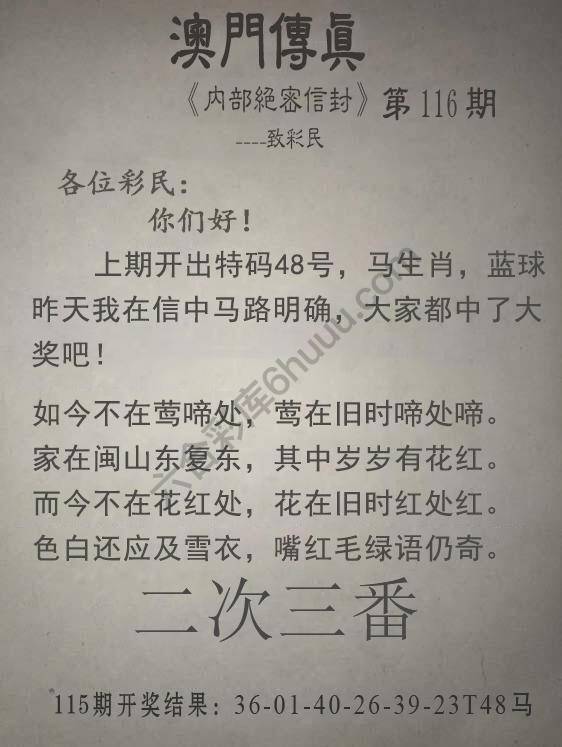 澳門傳真
《内部絕密信封》第116期
----致彩民
各位彩民：
你们好！
上期开出特码48号，马生肖，蓝球
昨天我在信中马路明确，大家都中了大
奖吧！
如今不在莺啼处，莺在旧时啼处啼。
家在闽山东复东，其中岁岁有花红。
而今不在花红处，花在旧时红处红。
色白还应及雪衣，嘴红毛绿语仍奇。
二次三番
115期开奖结果：36-01-40-26-39-23T48马
六合彩库6huuu.com